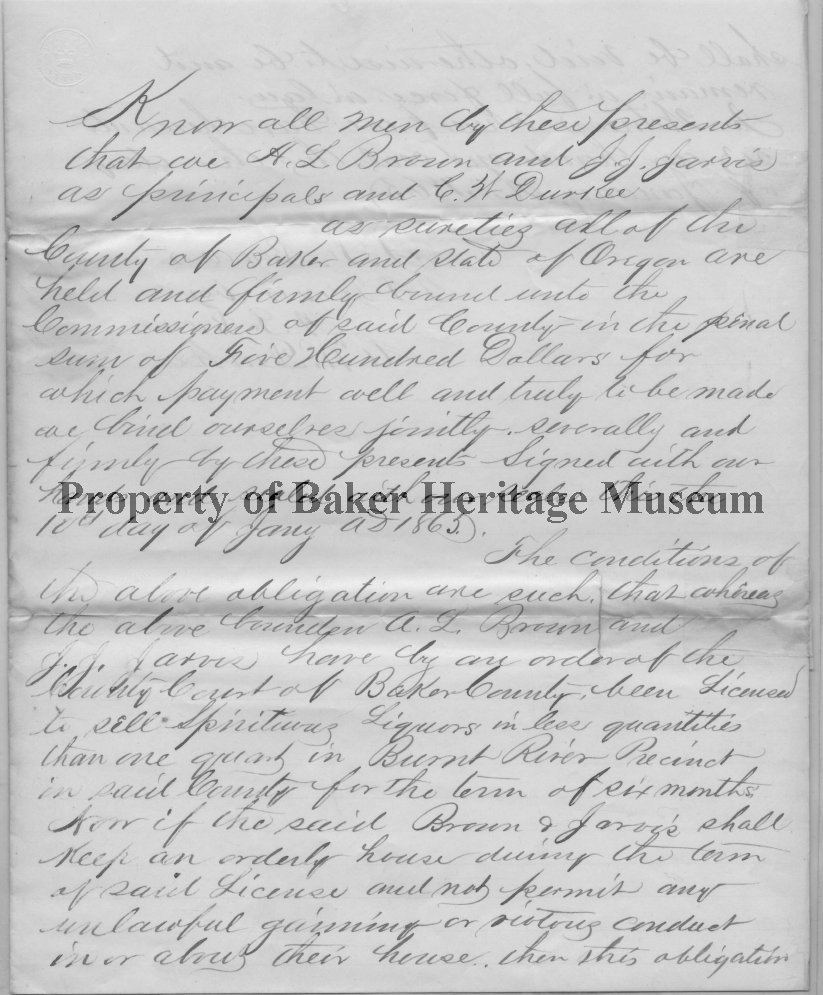 Know all men by these presents
that we A. L Brown and J. J. Jarvis
as principals and C. W Durkee
as sureties all of the
County of Baker and state of Oregon are
held and firmly bound unto the
Commissioners of said County in the pinal
sum of Five Hundred Dollars for
which payment well and truly to be made
we bind ourselves jointly severally and
firmly by these presents Signed with our
Property of Baker Heritage Museum
day of Jany AD 1865.
The conditions of
the above obligation are such, that whereas
the above bounden A. L. Brown and
J. J. Jarvis have by an order of the
County Court of Baker County, been Licensed
to sell Spirituous Liquors in less quantities
than one quart in Burnt River Precinct
in said County for the term of six months.
Now if the said Brown & Jarvis shall
Keep an orderly house during the term
of said License and not permit any
unlawful gaming or riotous conduct
in or about their house. then this obligation